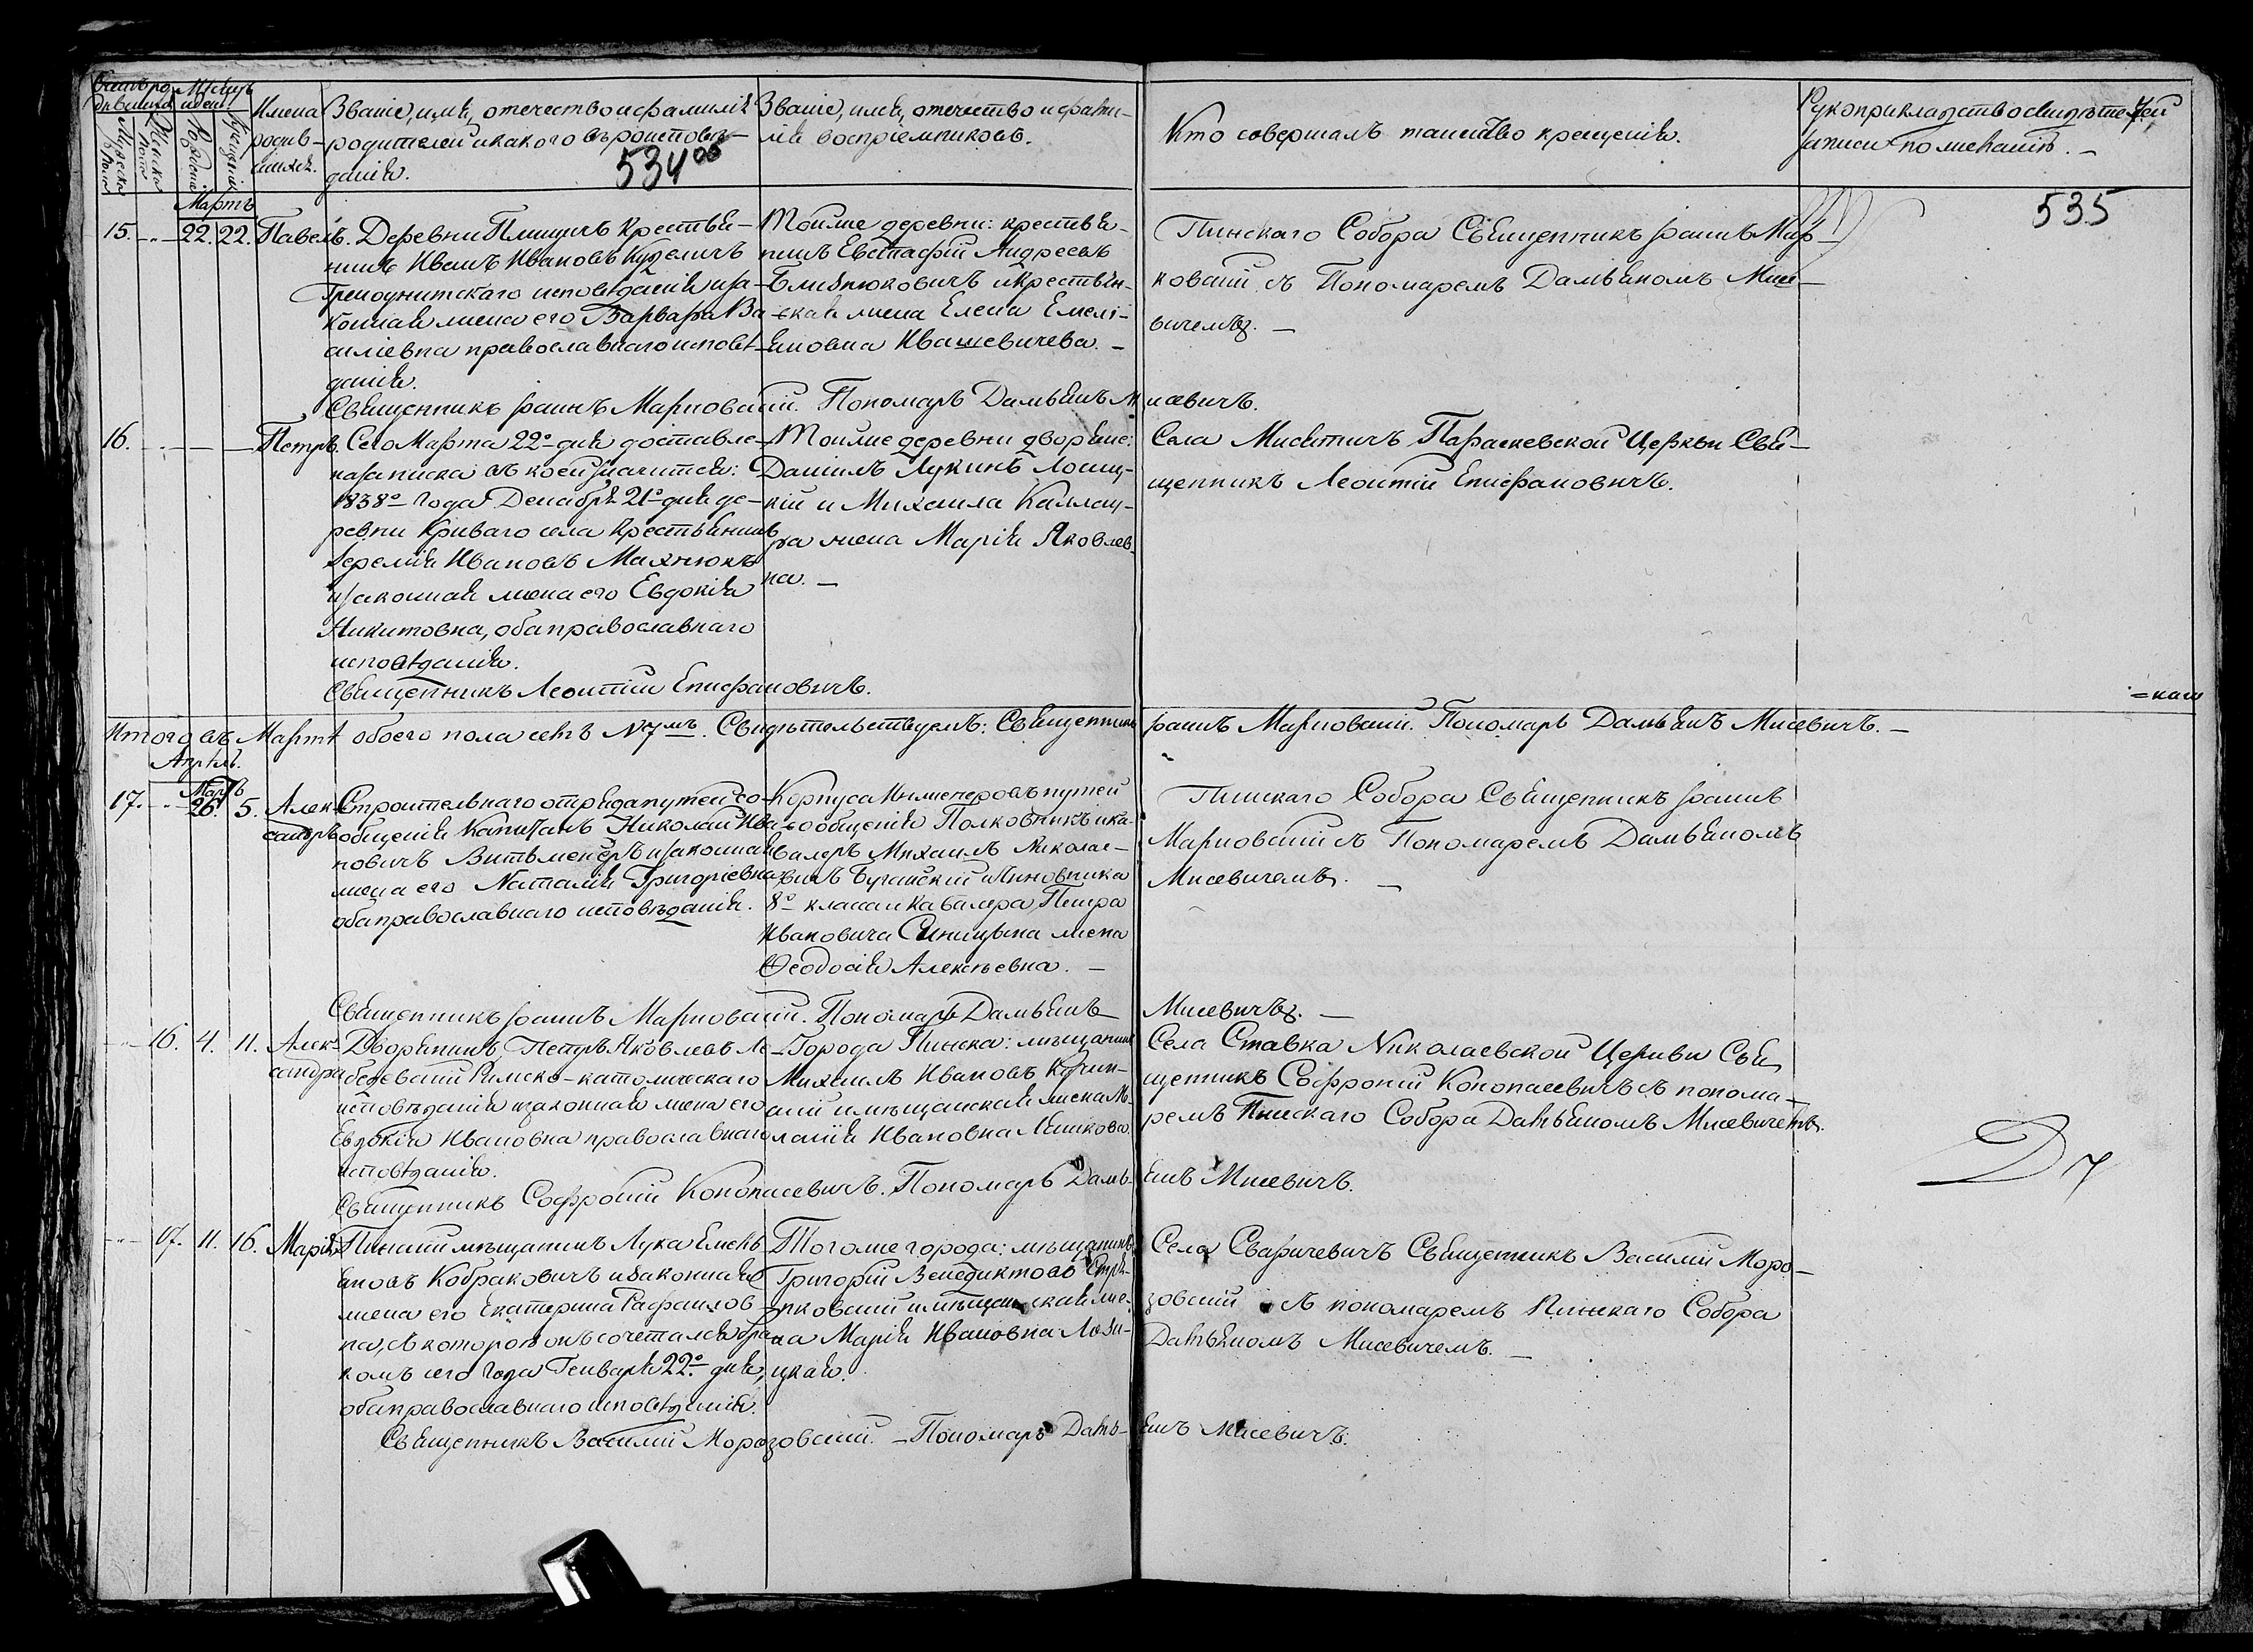 Мѣсяцъ
и день
Мужеска
пола
Женска
пола
Рожденія
Крещенія
Имена
родив-
шихся.
Званіе, имя, отечество и фамилія
родителей и какого вѣроисповѣ-
данія.
534 об
Званіе, имя, отечество и фами-
лія воспріемниковъ.
Кто совершалъ таинство крещенія.
Рукоприкладство свидѣтелей
записи по желанію. —
535
Мартъ
15. 22. 22. Павелъ.
Деревни крестья-
нинъ Иванъ Ивановъ
Грекоунитскаго исповѣданія и за-
конная жена его Варвара Ва-
силіевна православнаго исповѣ-
данія.
Тойже деревни: крестья-
нинъ Евстафій Андреевъ
и крестьян-
ская жена Елена Емелі-
яновна Ивашевичева. —
Пинскаго Собора Священникъ Іоаннъ Мар-
новскій съ Пономаремъ Дамьяномъ Мисе-
вичемъ. —
Священникъ Іоаннъ Марновскій. Пономарь Дамьянъ Мисевичъ.
16. Петръ.
Сего Марта 22º дня доставле-
на записка въ коей значится:
1838º года Декабря 21º дня де-
ревни Криваго села крестьянинъ
Іеремія Ивановъ Махнюкъ
и законная жена его Евдокія
Никитовна, оба православнаго
исповѣданія.
Тойже деревни дворяне:
Даніилъ Лукинъ
и Михаила
жена Марія Яковлев-
на. —
Села Мисятичъ Параскевской Церкви Свя-
щенникъ Леонтій Епифановичъ.
Священникъ Леонтій Епифановичъ.
Итого въ Мартѣ обоего пола семь N 7мъ. Свидѣтельствуемъ: Священникъ Іоаннъ Марновскій. Пономарь Дамьянъ Мисевичъ. —
Апрѣль.
Мартъ
17. 26. 5. Алек-
сандръ
Строительнаго отряда путей со-
общенія Капитанъ Николай Ива-
новичъ и законная
жена его Наталія Григоріевна
оба православнаго исповѣданія.
Корпуса Инженеровъ путей
сообщенія Полковникъ и ка-
валеръ Михаилъ Николае-
вичъ и Чиновника
8º класса и Кавалера Петра
Ивановича Синицына жена
Ѳеодосія Алексѣевна. —
Пинскаго Собора Священникъ Іоаннъ
Марновскій съ Пономаремъ Дамьяномъ
Мисевичемъ. —
Священникъ Іоаннъ Марновскій. Пономарь Дамьянъ Мисевичъ. —
16. 4. 11. Алек-
сандра
Дворянинъ Петръ Яковлевъ Ле-
бедевскій Римско-католическаго
исповѣданія и законная жена его
Евдокія Ивановна православнаго
исповѣданія.
Города Пинска: мѣщанинъ
Михаилъ Ивановъ
и мѣщанская жена
Ивановна
Села Ставка Николаевской Церкви Свя-
щенникъ Софроній Конопасевичъ съ понома-
ремъ Пинскаго Собора Дамьяномъ Мисевичемъ.
Священникъ Софроній Конопасевичъ. Пономарь Дамьянъ Мисевичъ.
17. 11. 16. Марія
Пинскій мѣщанинъ Лука Емелья-
новъ Кобраковичъ и законная
жена его Екатерина Рафаилов-
на, съ которою онъ сочетался бра-
комъ сего года Генваря 22º дня,
оба православнаго исповѣданія.
Тогоже города: мѣщанинъ
Григорій Венедиктовъ
и мѣщанская же-
на Марія Ивановна
Села Сваричевичъ Священникъ Василій Моро-
зовскій съ пономаремъ Пинскаго Собора
Дамьяномъ Мисевичемъ. —
Священникъ Василій Морозовскій. — Пономарь Дамьянъ Мисевичъ.